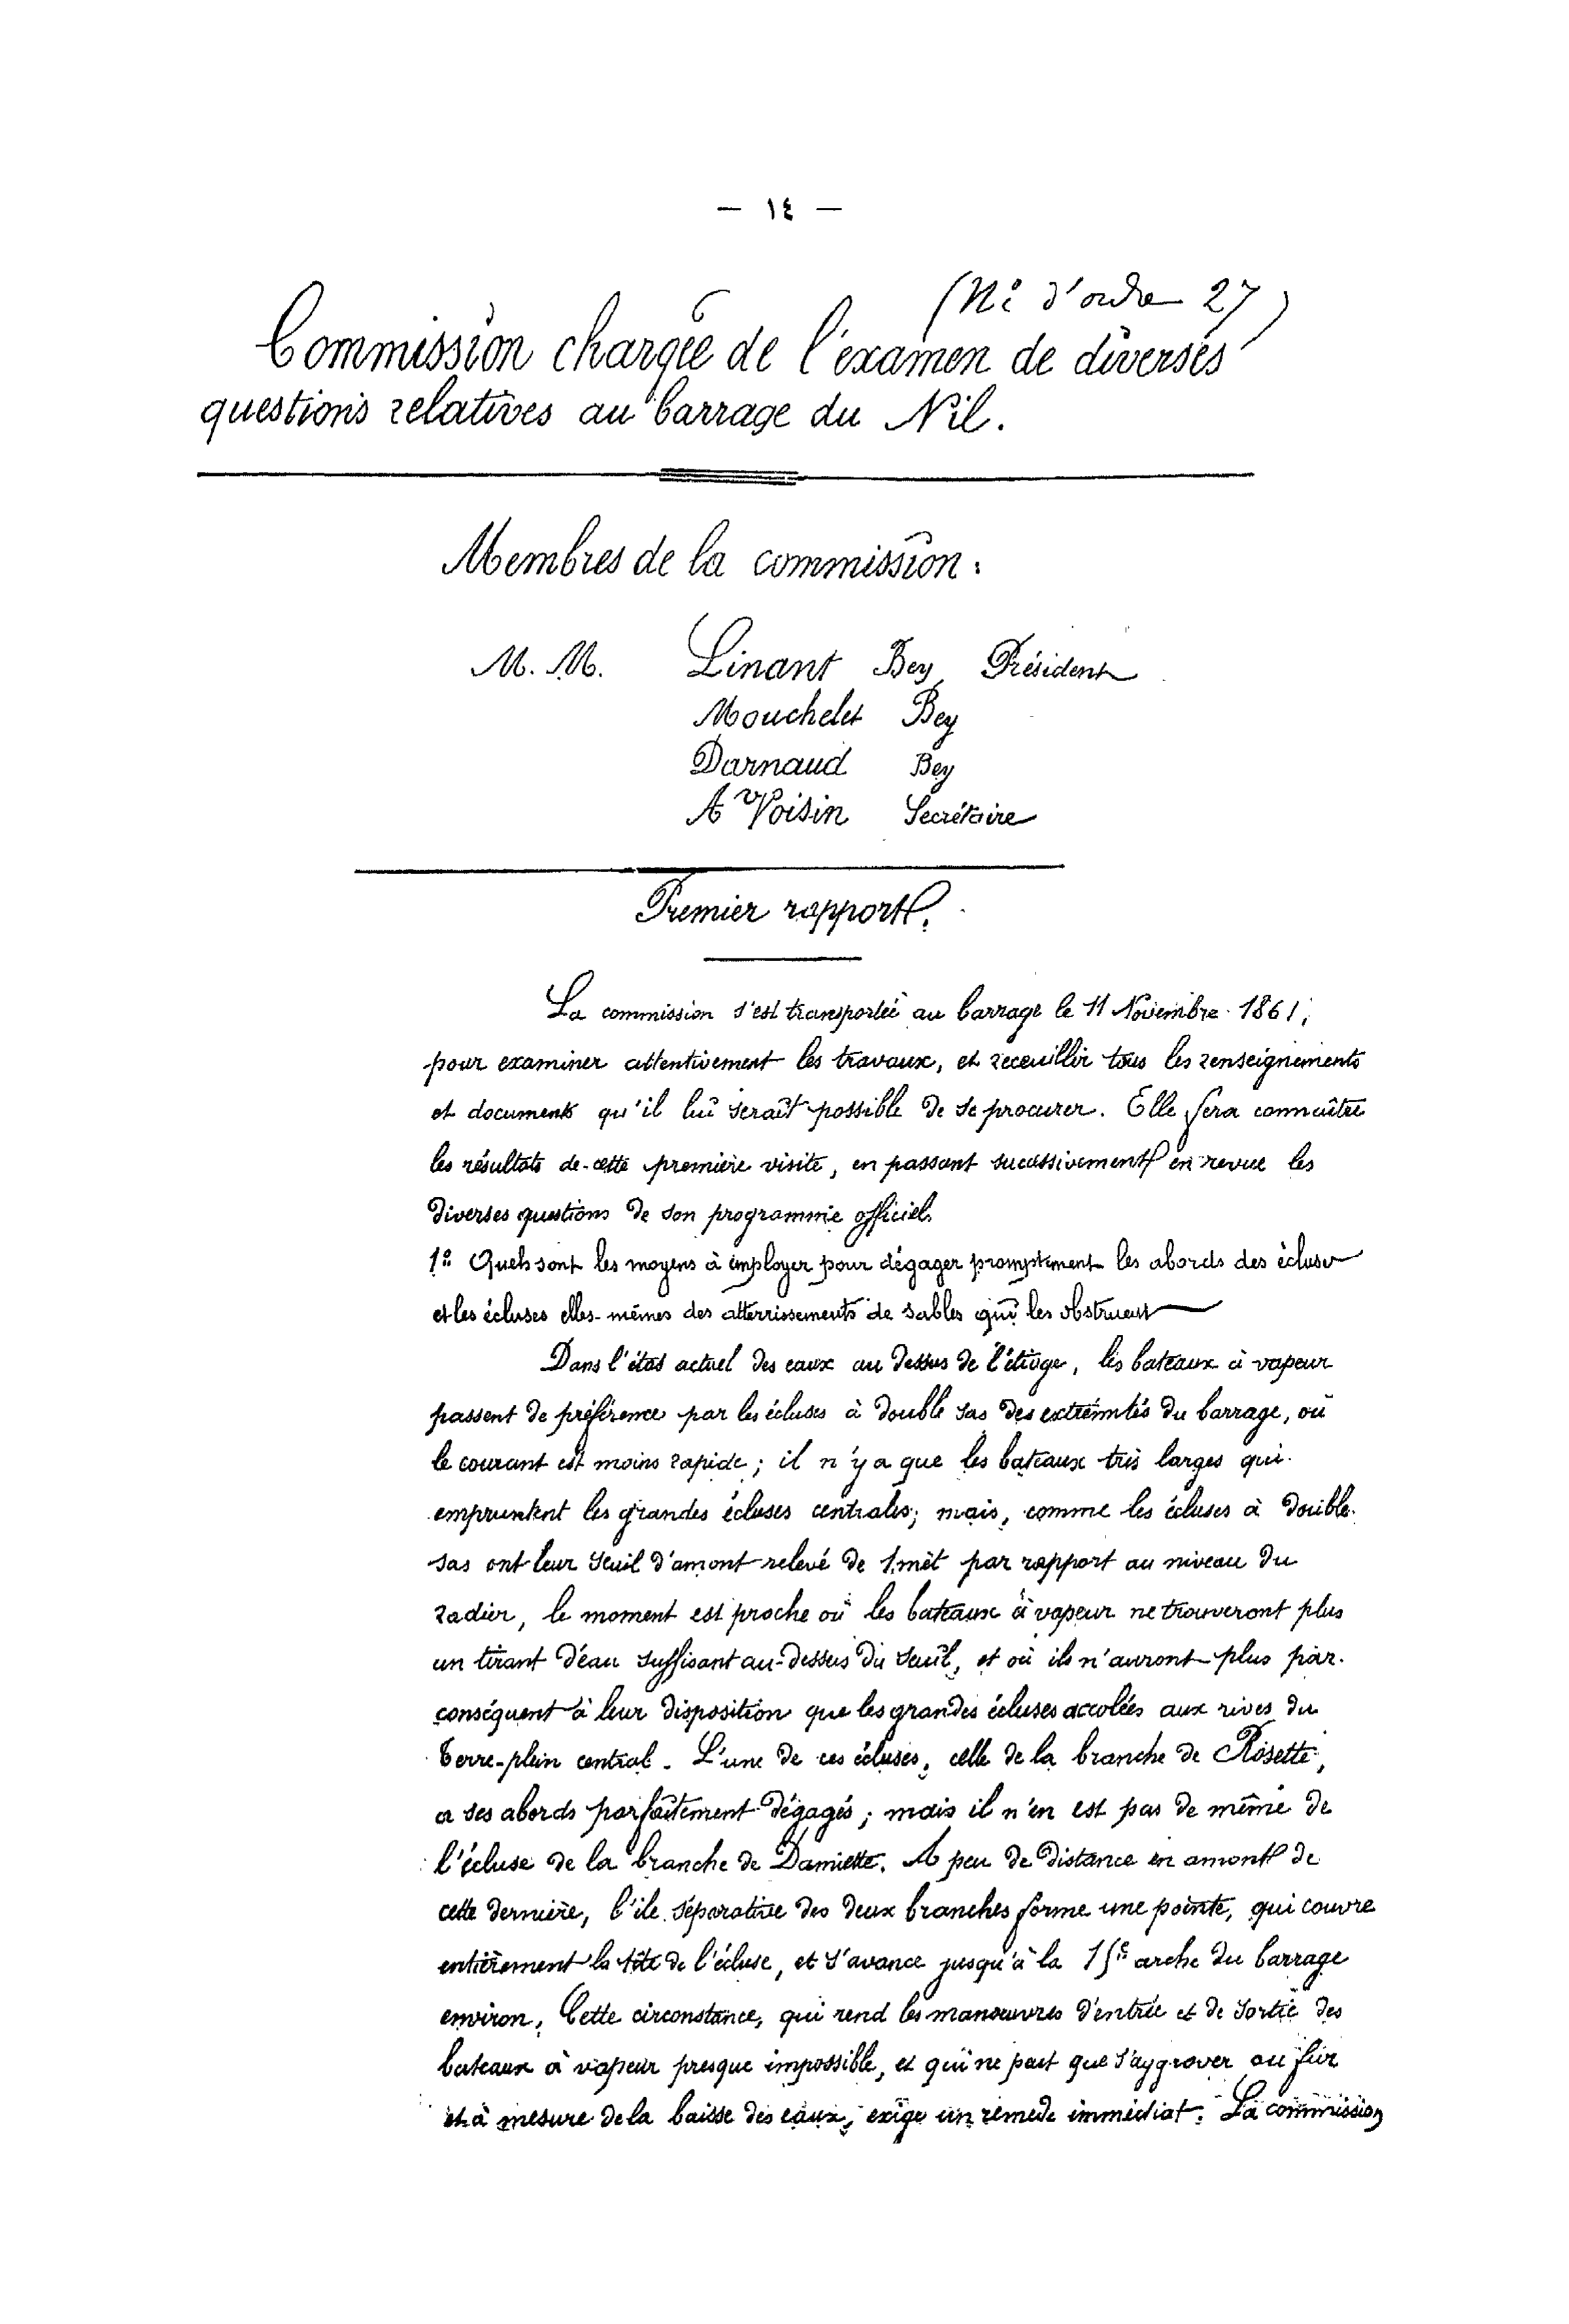 — ١٤ —
(N° d'ordre 27)
Commission chargée de l'examen de diverses
questions relatives au barrage du Nil.
Membres de la commission :
M. M. Linant Bey Président
Mouchelet Bey
Darnaud Bey
A Voisin Secrétaire
Premier rapport.
La commission s'est transportée au barrage le 11 Novembre 1861,
pour examiner attentivement les travaux, et receuillir tous les renseignements
et documents qu'il lui serait possible de se procurer. Elle fera connaître
les résultats de cette première visite, en passant successivement en revue les
diverses questions de son programme officiel.
1° Quels sont les moyens à employer pour dégager promptement les abords des écluses
et les écluses elles-mêmes des atterrissements de sables qui les obstruent
Dans l'état actuel des eaux au dessus de l'étiage, les bateaux à vapeur
passent de préférence par les écluses à double sas des extrémités du barrage, où
le courant est moins rapide ; il n'y a que les bateaux très larges qui
empruntent les grandes écluses centrales ; mais, comme les écluses à double
sas ont leur seuil d'amont relevé de 1.mèt par rapport au niveau du
radier, le moment est proche où les bateaux à vapeur ne trouveront plus
un tirant d'eau suffisant au-dessus du seuil, et où ils n'auront plus par
conséquent à leur disposition que les grandes écluses accolées aux rives du
terre-plein central. L'une de ces écluses, celle de la branche de Rosette,
a ses abords parfaitement dégagés ; mais il n'en est pas de même de
l'écluse de la branche de Damiette. A peu de distance en amont de
cette dernière, l'ile séparative des deux branches forme une pointe, qui couvre
entièrement la tête de l'écluse, et s'avance jusqu'à la arche du barrage
environ. Cette circonstance, qui rend les manœuvres d'entrée et de sortie des
bateaux à vapeur presque impossible, et qui ne peut que s'aggraver au fur
et à mesure de la baisse des eaux, exige un remède immédiat. La commission